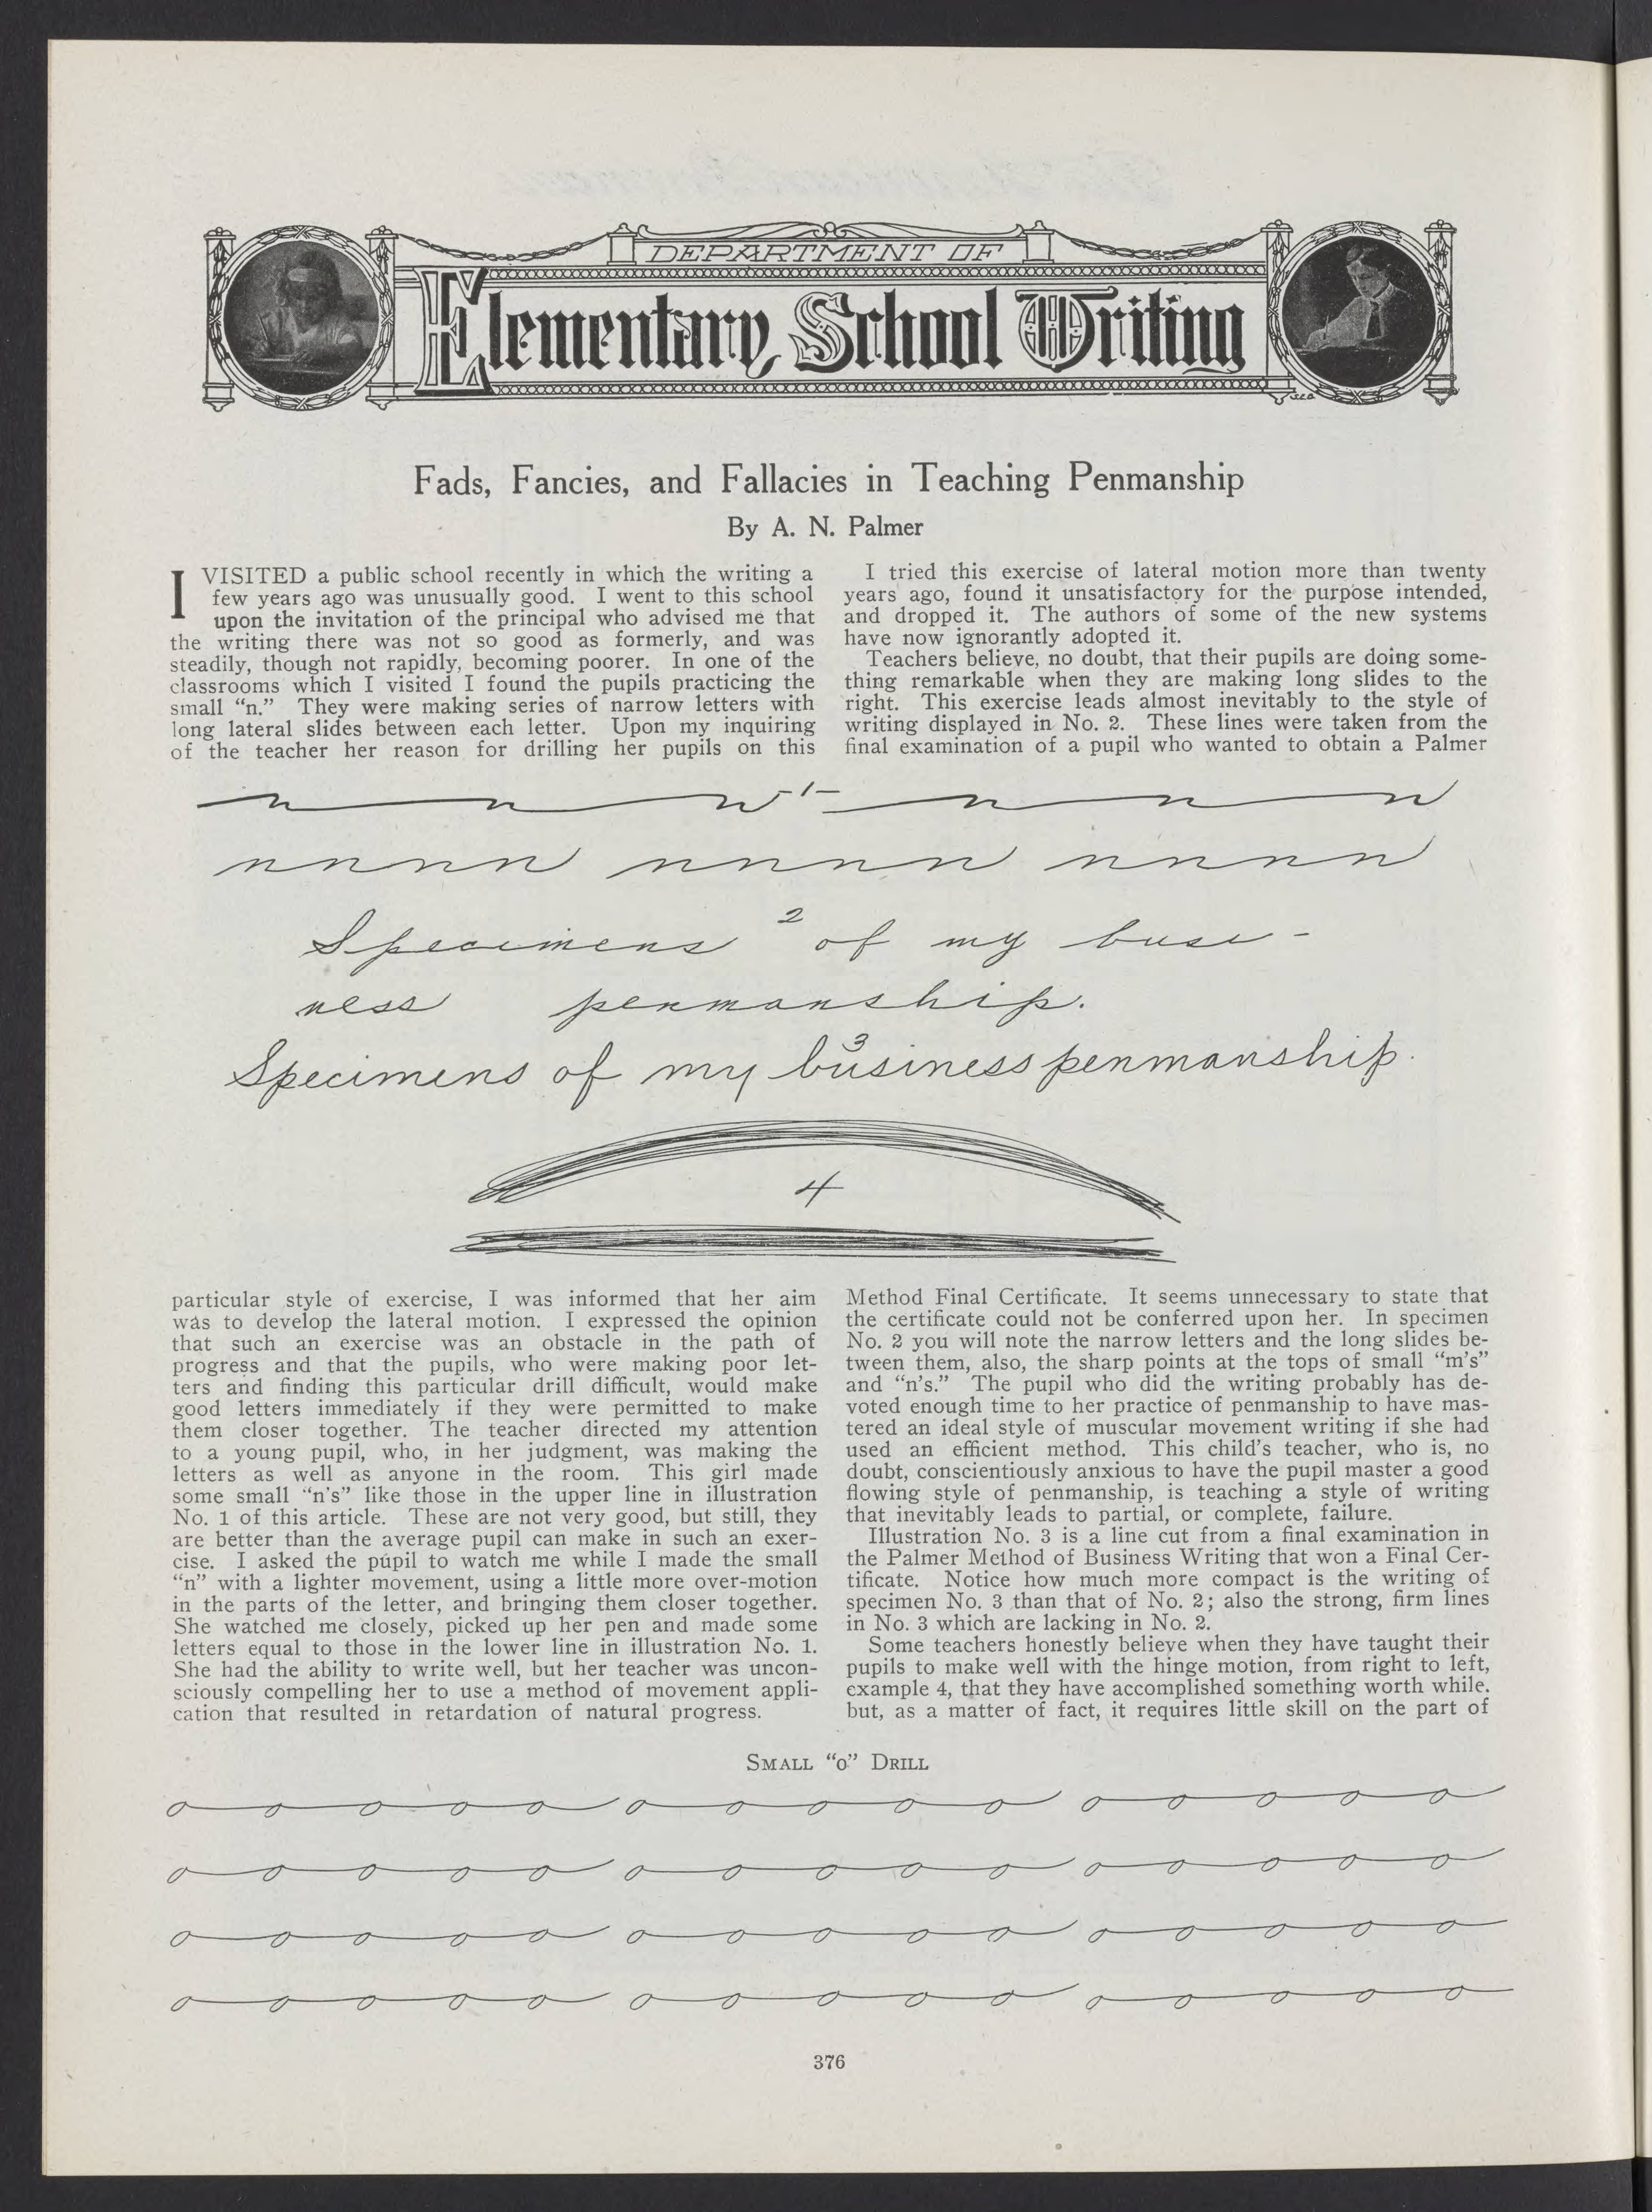 DEPARTMENT OF
Elementary School Writing
Fads, Fancies, and Fallacies in Teaching Penmanship
By A. N. Palmer
I VISITED a public school recently in which the writing a
few years ago was unusually good. I went to this school
upon the invitation of the principal who advised me that
the writing there was not so good as formerly, and was
steadily, though not rapidly, becoming poorer. In one of the
classrooms which I visited I found the pupils practicing the
small “n.” They were making series of narrow letters with
long lateral slides between each letter. Upon my inquiring
of the teacher her reason for drilling her pupils on this
I tried this exercise of lateral motion more than twenty
years ago, found it unsatisfactory for the purpose intended,
and dropped it. The authors of some of the new systems
have now ignorantly adopted it.
Teachers believe, no doubt, that their pupils are doing some-
thing remarkable when they are making long slides to the
right. This exercise leads almost inevitably to the style of
writing displayed in No. 2. These lines were taken from the
final examination of a pupil who wanted to obtain a Palmer
-1-
n n n n n n
n n n n n n n n n n n n
2
Specimens of my busi-
ness penmanship.
3
Specimens of my business penmanship.
4
particular style of exercise, I was informed that her aim
was to develop the lateral motion. I expressed the opinion
that such an exercise was an obstacle in the path of
progress and that the pupils, who were making poor let-
ters and finding this particular drill difficult, would make
good letters immediately if they were permitted to make
them closer together. The teacher directed my attention
to a young pupil, who, in her judgment, was making the
letters as well as anyone in the room. This girl made
some small “n's” like those in the upper line in illustration
No. 1 of this article. These are not very good, but still, they
are better than the average pupil can make in such an exer-
cise. I asked the pupil to watch me while I made the small
“n” with a lighter movement, using a little more over-motion
in the parts of the letter, and bringing them closer together.
She watched me closely, picked up her pen and made some
letters equal to those in the lower line in illustration No. 1.
She had the ability to write well, but her teacher was uncon-
sciously compelling her to use a method of movement appli-
cation that resulted in retardation of natural progress.
Method Final Certificate. It seems unnecessary to state that
the certificate could not be conferred upon her. In specimen
No. 2 you will note the narrow letters and the long slides be-
tween them, also, the sharp points at the tops of small “m's”
and “n's.” The pupil who did the writing probably has de-
voted enough time to her practice of penmanship to have mas-
tered an ideal style of muscular movement writing if she had
used an efficient method. This child's teacher, who is, no
doubt, conscientiously anxious to have the pupil master a good
flowing style of penmanship, is teaching a style of writing
that inevitably leads to partial, or complete, failure.
Illustration No. 3 is a line cut from a final examination in
the Palmer Method of Business Writing that won a Final Cer-
tificate. Notice how much more compact is the writing of
specimen No. 3 than that of No. 2; also the strong, firm lines
in No. 3 which are lacking in No. 2.
Some teachers honestly believe when they have taught their
pupils to make well with the hinge motion, from right to left,
example 4, that they have accomplished something worth while.
but, as a matter of fact, it requires little skill on the part of
SMALL “o” DRILL
o o o o o o o o o o o o o o o
o o o o o o o o o o o o o o o
o o o o o o o o o o o o o o o
o o o o o o o o o o o o o o o
376